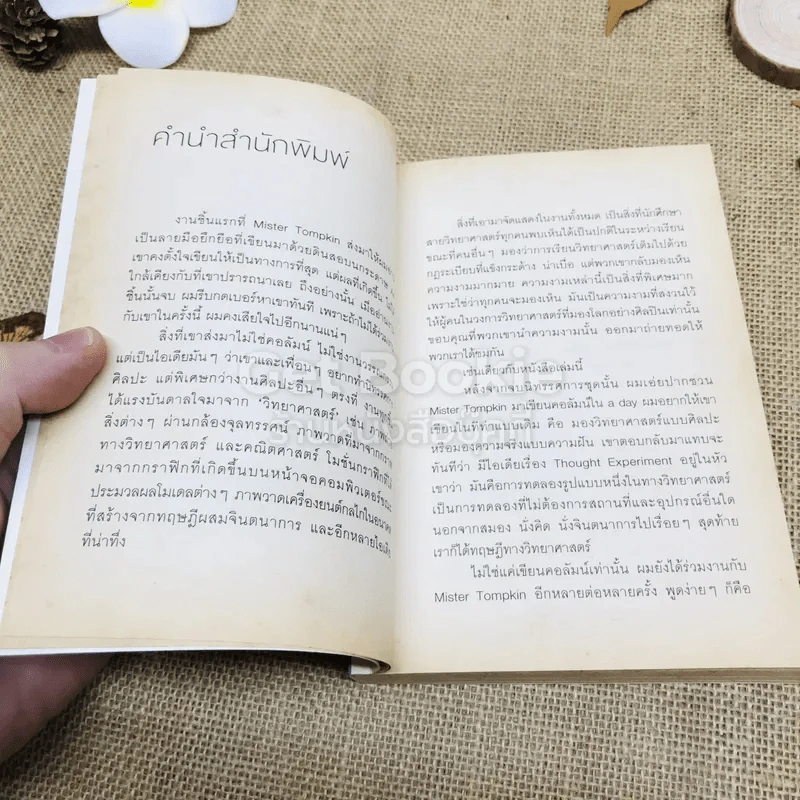 คำนำสำนักพิมพ์
งานชิ้นแรกที่ Mister Tompkin ส่งมาให้ผม
เป็นลายมือยึกยือที่เขียนมาด้วยดินสอบนกระดาษ
เขาคงตั้งใจเขียนให้เป็นทางการที่สุด แต่ผลที่เกิดขึ้น
ใกล้เคียงกับที่เขาปรารถนาเลย ถึงอย่างนั้น เมื่ออ่าน
ชิ้นนั้นจบ ผมรีบกดเบอร์หาเขาทันที เพราะถ้าไม่ได้
กับเขาในครั้งนี้ ผมคงเสียใจไปอีกนานแน่ๆ
สิ่งที่เขาส่งมาไม่ใช่คอลัมน์ ไม่ใช่งานวรรณ
แต่เป็นไอเดียมันๆ ว่าเขาและเพื่อนๆ อยากทำนิทรรศ
ศิลปะ แต่พิเศษกว่างานศิลปะอื่นๆ ตรงที่ งานทุกชิ้น
ได้แรงบันดาลใจมาจาก 'วิทยาศาสตร์' เช่น ภาพ
สิ่งต่างๆ ผ่านกล้องจุลทรรศน์ ภาพวาดที่มาจากกราฟ
ทางวิทยาศาสตร์ และคณิตศาสตร์ โมชั่นกราฟิกที่ได้
มาจากกราฟิกที่เกิดขึ้นบนหน้าจอคอมพิวเตอร์ขณะ
ประมวลผลโมเดลต่างๆ ภาพวาดเครื่องยนต์กลไกในอนาคต
ที่สร้างจากทฤษฎีผสมจินตนาการ และอีกหลายไอเดีย
ที่น่าทึ่ง
สิ่งที่เอามาจัดแสดงในงานทั้งหมด เป็นสิ่งที่นักศึกษา
สายวิทยาศาสตร์ทุกคนพบเห็นได้เป็นปกติในระหว่างเรียน
ขณะที่คนอื่นๆ มองว่าการเรียนวิทยาศาสตร์เต็มไปด้วย
กฎระเบียบที่แข็งกระด้าง น่าเบื่อ แต่พวกเขากลับมองเห็น
ความงามมากมาย ความงามเหล่านี้เป็นสิ่งที่พิเศษมาก
เพราะใช่ว่าทุกคนจะมองเห็น มันเป็นความงามที่สงวนไว้
ให้ผู้คนในวงการวิทยาศาสตร์ที่มองโลกอย่างศิลปินเท่านั้น
ขอบคุณที่พวกเขานำความงามนั้น ออกมาถ่ายทอดให้
พวกเราได้ชมกัน
เช่นเดียวกับหนังสือเล่มนี้
หลังจากจบนิทรรศการชุดนั้น ผมเอ่ยปากชวน
Mister Tompkin มาเขียนคอลัมน์ใน a day ผมอยากให้เขา
เขียนในที่ทำแบบเดิม คือ มองวิทยาศาสตร์แบบศิลปะ
หรือมองความจริงแบบความฝัน เขาตอบกลับมาแทบจะ
ทันทีว่า มีไอเดียเรื่อง Thought Experiment อยู่ในหัว
เขาว่า มันคือการทดลองรูปแบบหนึ่งในทางวิทยาศาสตร์
เป็นการทดลองที่ไม่ต้องการสถานที่และอุปกรณ์อื่นใด
นอกจากสมอง นั่งคิด นั่งจินตนาการไปเรื่อยๆ สุดท้าย
เราก็ได้ทฤษฎีทางวิทยาศาสตร์
ไม่ใช่แค่เขียนคอลัมน์เท่านั้น ผมยังได้ร่วมงานกับ
Mister Tompkin อีกหลายต่อหลายครั้ง พูดง่ายๆ ก็คือ